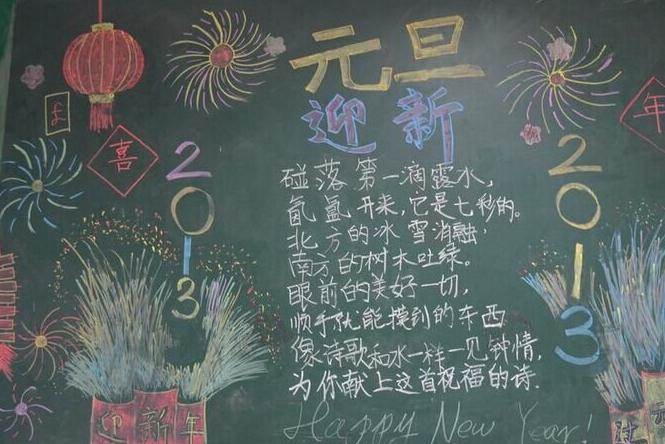 元旦
迎新
喜
2013
碰落第一滴露水,
氤氲开来,它是七彩的。
北方的冰雪消融,
南方的树木吐绿。
眼前的美好一切,
顺手就能摸到的东西
像诗歌和水一样一见钟情,
为你献上这首祝福的诗.
Happy New Year!
2013
年
迎新年
过